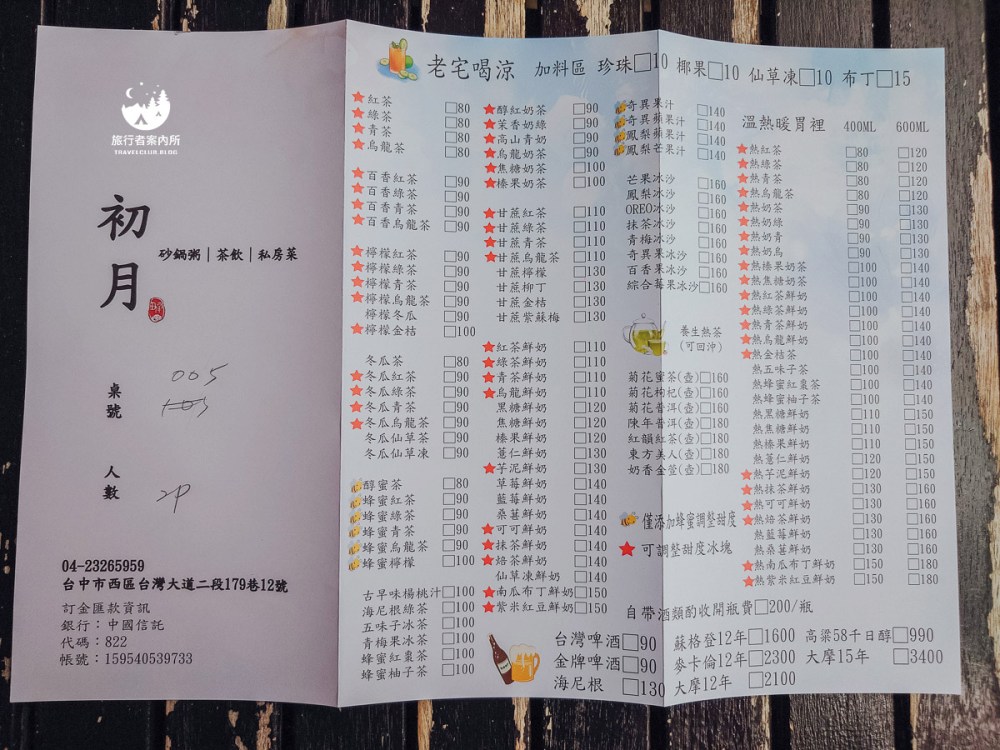 旅行者案內所
TRAVELCLUB.BLOG
初月
砂鍋粥｜茶飲｜私房菜
桌號
005
人數
2P
04-23265959
台中市西區台灣大道二段179巷12號
訂金匯款資訊
銀行：中國信託
代碼：822
帳號：159540539733
老宅喝涼 加料區 珍珠□10 椰果□10 仙草凍□10 布丁□15
紅茶 □80
綠茶 □80
青茶 □80
烏龍茶 □80
百香紅茶 □90
百香綠茶 □90
百香青茶 □90
百香烏龍茶 □90
檸檬紅茶 □90
檸檬綠茶 □90
檸檬青茶 □90
檸檬烏龍茶 □90
檸檬冬瓜 □90
檸檬金桔 □100
冬瓜茶 □80
冬瓜紅茶 □90
冬瓜綠茶 □90
冬瓜青茶 □90
冬瓜烏龍茶 □90
冬瓜仙草茶 □90
冬瓜仙草凍 □90
醇蜜茶 □80
蜂蜜紅茶 □90
蜂蜜綠茶 □90
蜂蜜青茶 □90
蜂蜜烏龍茶 □90
蜂蜜檸檬 □100
古早味楊桃汁□100
海尼根綠茶 □100
五味子冰茶 □100
青梅果冰茶 □100
蜂蜜紅棗茶 □100
蜂蜜柚子茶 □100
醇紅奶茶 □90
茉香奶綠 □90
高山青奶 □90
烏龍奶茶 □90
焦糖奶茶 □100
榛果奶茶 □100
甘蔗紅茶 □110
甘蔗綠茶 □110
甘蔗青茶 □110
甘蔗烏龍茶 □110
甘蔗檸檬 □130
甘蔗柳丁 □130
甘蔗金桔 □130
甘蔗紫蘇梅 □130
紅茶鮮奶 □110
綠茶鮮奶 □110
青茶鮮奶 □110
烏龍鮮奶 □110
黑糖鮮奶 □120
焦糖鮮奶 □120
榛果鮮奶 □120
薏仁鮮奶 □130
芋泥鮮奶 □130
草莓鮮奶 □140
藍莓鮮奶 □140
桑葚鮮奶 □140
可可鮮奶 □140
抹茶鮮奶 □140
焙茶鮮奶 □140
仙草凍鮮奶 □140
南瓜布丁鮮奶□150
紫米紅豆鮮奶□150
奇異果汁 □140
奇異蘋果汁 □140
鳳梨蘋果汁 □140
鳳梨芒果汁 □140
芒果冰沙 □160
鳳梨冰沙 □160
OREO冰沙 □160
抹茶冰沙 □160
青梅冰沙 □160
奇異果冰沙 □160
百香果冰沙 □160
綜合莓果冰沙□160
養生熱茶
(可回沖)
菊花蜜茶(壺)□160
菊花枸杞(壺)□160
菊花普洱(壺)□160
陳年普洱(壺)□180
紅韻紅茶(壺)□180
東方美人(壺)□180
奶香金萱(壺)□180
僅添加蜂蜜調整甜度
可調整甜度冰塊
溫熱暖胃裡 400ML 600ML
熱紅茶 □80 □120
熱綠茶 □80 □120
熱青茶 □80 □120
熱烏龍茶 □80 □120
熱奶茶 □90 □130
熱奶綠 □90 □130
熱奶青 □90 □130
熱奶烏 □90 □130
熱榛果奶茶 □100 □140
熱焦糖奶茶 □100 □140
熱紅茶鮮奶 □100 □140
熱綠茶鮮奶 □100 □140
熱青茶鮮奶 □100 □140
熱烏龍鮮奶 □100 □140
熱金桔茶 □100 □140
熱五味子茶 □100 □140
熱蜂蜜紅棗茶 □100 □140
熱蜂蜜柚子茶 □100 □140
熱黑糖鮮奶 □110 □150
熱焦糖鮮奶 □110 □150
熱榛果鮮奶 □110 □150
熱薏仁鮮奶 □120 □150
熱芋泥鮮奶 □120 □150
熱抹茶鮮奶 □130 □160
熱可可鮮奶 □130 □160
熱焙茶鮮奶 □130 □160
熱藍莓鮮奶 □130 □160
熱桑葚鮮奶 □130 □160
熱南瓜布丁鮮奶 □150 □180
熱紫米紅豆鮮奶 □150 □180
自帶酒類酌收開瓶費□200/瓶
台灣啤酒□90
金牌啤酒□90
海尼根 □130
蘇格登12年□1600 高粱58千日醇□990
麥卡倫12年□2300 大摩15年 □3400
大摩12年 □2100